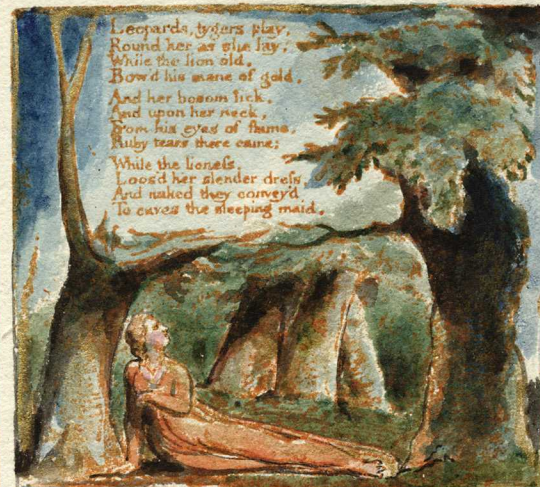 Leopards, tygers play,
Round her as she lay;
While the lion old,
Bow'd his mane of gold.
And her bosom lick,
And upon her neck,
From his eyes of flame,
Ruby tears there came;
While the lioneſs,
Loos'd her slender dreſs,
And naked they convey'd
To caves the sleeping maid.